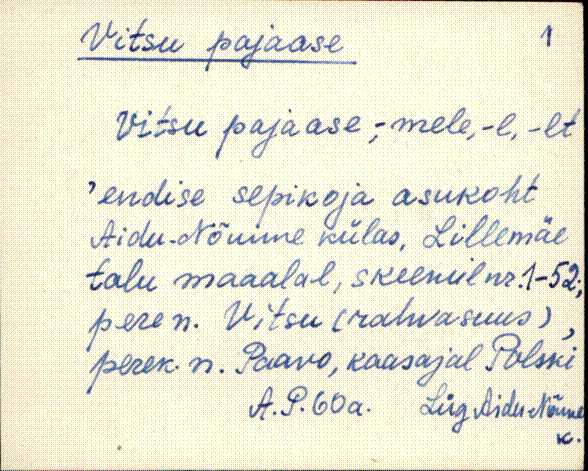 Vitsu pajaase 1
Vitsu pajaase, -mele, -l, -lt
'endise sepikoja asukoht
Aidu-Nõmme külas, Lillemäe
talu maaalal, skeemil nr. 1-52;
pere n. Vitsu (rahvasuus),
perek. n. Paavo, kaasajal Polski
A. P. 60 a. Lüg Aidu-Nõmme
k.